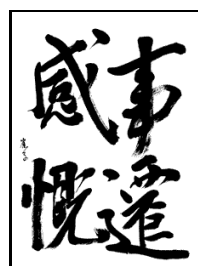 事遷
感慨